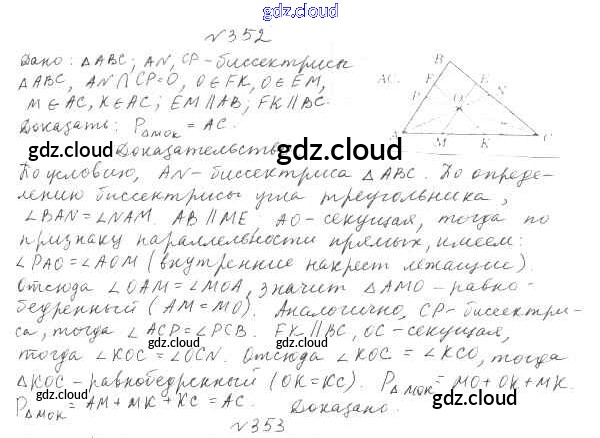 gdz.cloud
№352
Дано: △ABC; AN, CP - биссектрисы
△ABC, AN ∩ CP=O, O∈FK, O∈EM,
M∈AC, K∈AC; EM ∥ AB; FK ∥ BC.
AC.
B
F
E
P
O
N
A
M
K
C
Доказать: P△MOK = AC.
gdz.cloud
Доказательство
gdz.cloud
gdz.cloud
По условию, AN - биссектриса △ABC. По опреде-
лению биссектрисы угла треугольника,
∠BAN = ∠NAM. AB ∥ ME. AO - секущая, тогда по
признаку параллельности прямых, имеем:
∠PAO = ∠AOM (внутренние накрест лежащие).
Отсюда ∠OAM = ∠MOA, значит △AMO - равно-
gdz.cloud
gdz.cloud
бедренный (AM = MO). Аналогично, CP - биссектри-
са, тогда ∠ACP = ∠PCB. FK ∥ BC, OC - секущая,
gdz.cloud
gdz.cloud
тогда ∠KOC = ∠OCN. Отсюда ∠KOC = ∠KCO, тогда
△KOC - равнобедренный (OK = KC). P△MOK = MO + OK + MK.
P△MOK = AM + MK + KC = AC. Доказано.
gdz.cloud
gdz.cloud
№353